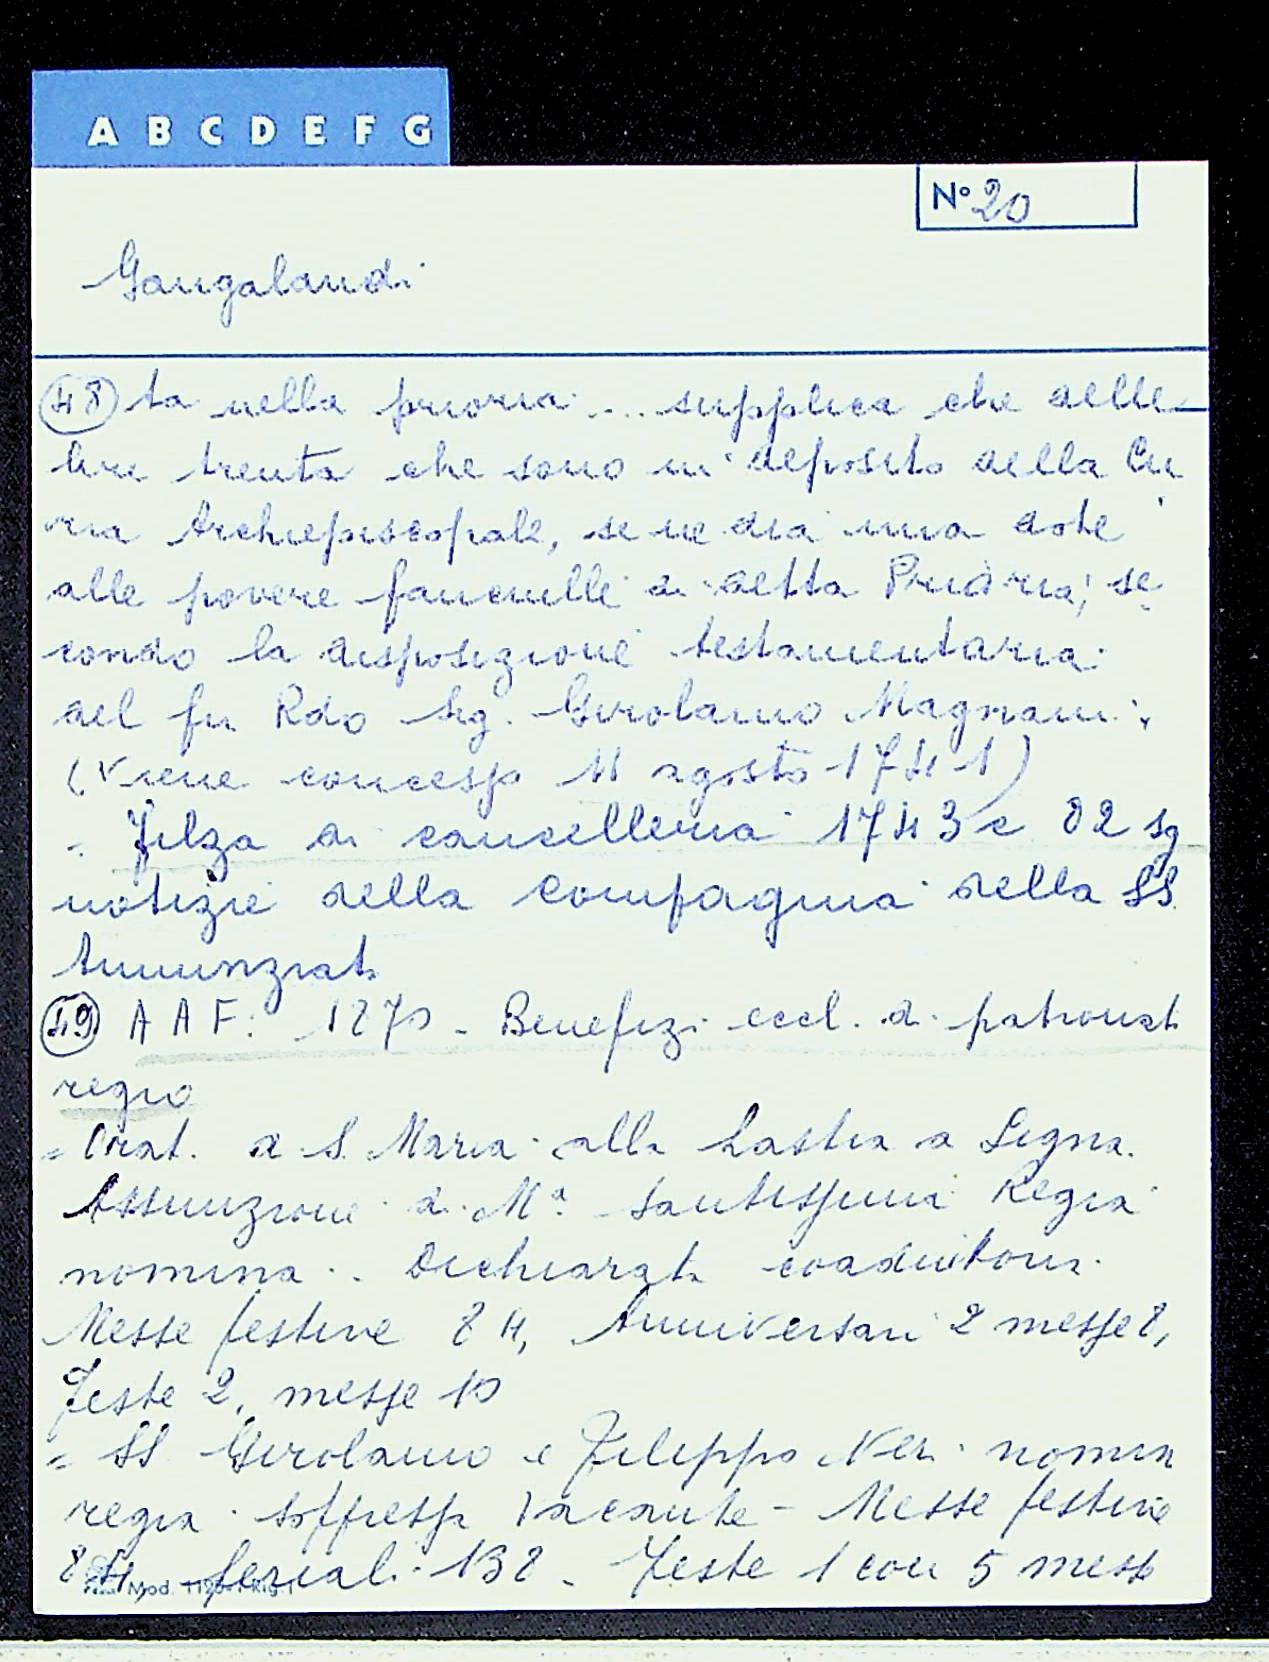 A B C D E F G
N° 20
Gangalandi
48 ta nella prioria .... supplica che delle
lire trenta che sono in deposito della Cu
ria Archiepiscopale, se ne dia una dote
alle povere fanciulle di detta Prioria, se
condo la disposizione testamentaria
del fu Rdo Sig. Girolamo Magnani.
(Viene concesso 11 agosto 1741)
- Filza di cancelleria 1743 c 82 sg
notizie della compagnia della SS
Annunziata
49 AAF: 1270 - Benefizi eccl. di patronato
regio
= Orat. di S. Maria alla Lastra a Signa.
Assunzione di Mª Santissima Regia
nomina. Dichiarata coadiutoria.
Messe festive 84, Anniversari 2 messe 8,
Feste 2, messe 10
= SS Girolamo e Filippo Neri nomina
regia. Soppressa vacante - Messe festive
84, feriali 138 - Feste 1 con 5 messe
Mod.